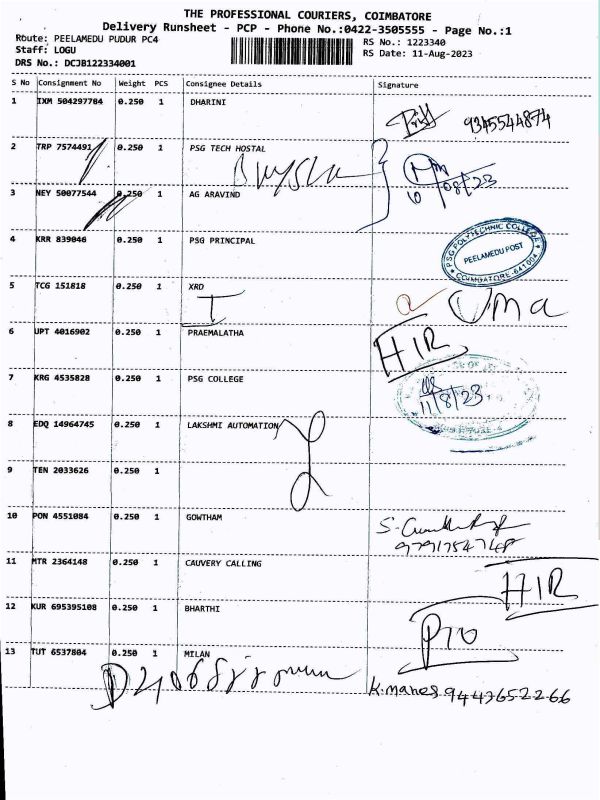 THE PROFESSIONAL COURIERS, COIMBATORE
Delivery Runsheet - PCP - Phone No.:0422-3505555 - Page No.:1
Route: PEELAMEDU PUDUR PC4 RS No.: 1223340
Staff: LOGU RS Date: 11-Aug-2023
DRS No.: DCJB122334001
S No Consignment No Weight PCS Consignee Details Signature
1 IXM 504297784 0.250 1 DHARINI
9345544874
2 TRP 7574491 0.250 1 PSG TECH HOSTAL
08/23
3 NEY 50077544 0.250 1 AG ARAVIND
4 KRR 839046 0.250 1 PSG PRINCIPAL
PSG POLYTECHNIC COLLEGE
PEELAMEDU POST
COIMBATORE-641004
5 TCG 151818 0.250 1 XRD
I Uma
6 UPT 4016902 0.250 1 PRAEMALATHA
HIR
7 KRG 4535828 0.250 1 PSG COLLEGE
11/8/23
8 EDQ 14964745 0.250 1 LAKSHMI AUTOMATION
9 TEN 2033626 0.250 1
10 PON 4551084 0.250 1 GOWTHAM
11 MTR 2364148 0.250 1 CAUVERY CALLING
HIR
12 KUR 695395108 0.250 1 BHARTHI
13 TUT 6537804 0.250 1 MILAN
K.mahes 9443652266